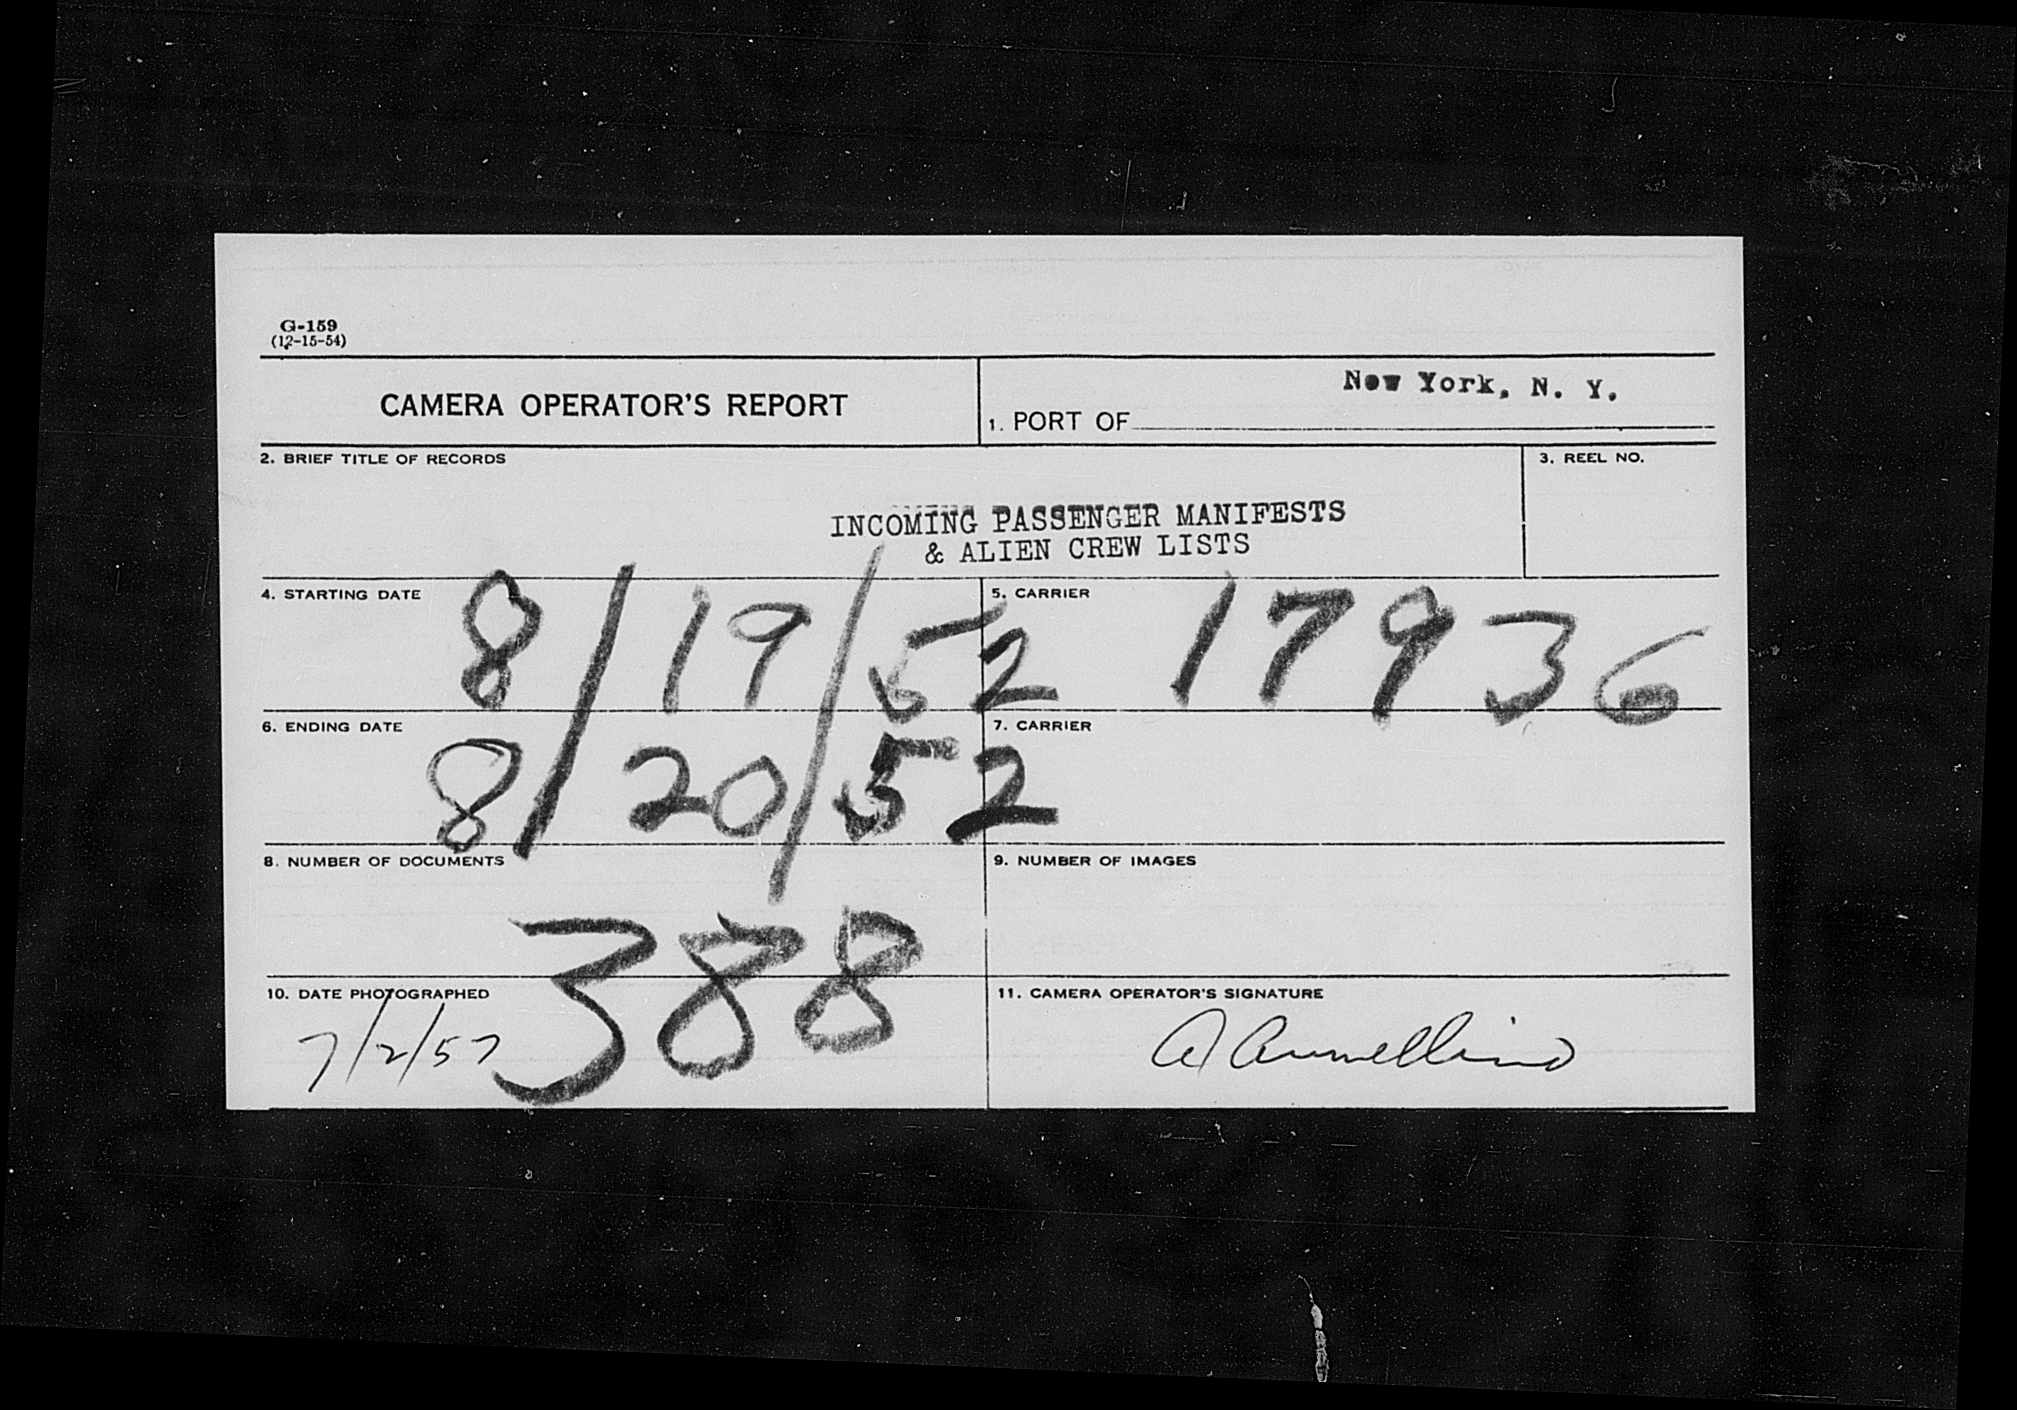 G-159
(12-15-54)
CAMERA OPERATOR'S REPORT
1. PORT OF New York, N. Y.
2. BRIEF TITLE OF RECORDS
3. REEL NO.
INCOMING PASSENGER MANIFESTS
& ALIEN CREW LISTS
4. STARTING DATE 8/19/52
5. CARRIER 17936
6. ENDING DATE 8/20/52
7. CARRIER
8. NUMBER OF DOCUMENTS
388
9. NUMBER OF IMAGES
10. DATE PHOTOGRAPHED
7/2/57
11. CAMERA OPERATOR'S SIGNATURE